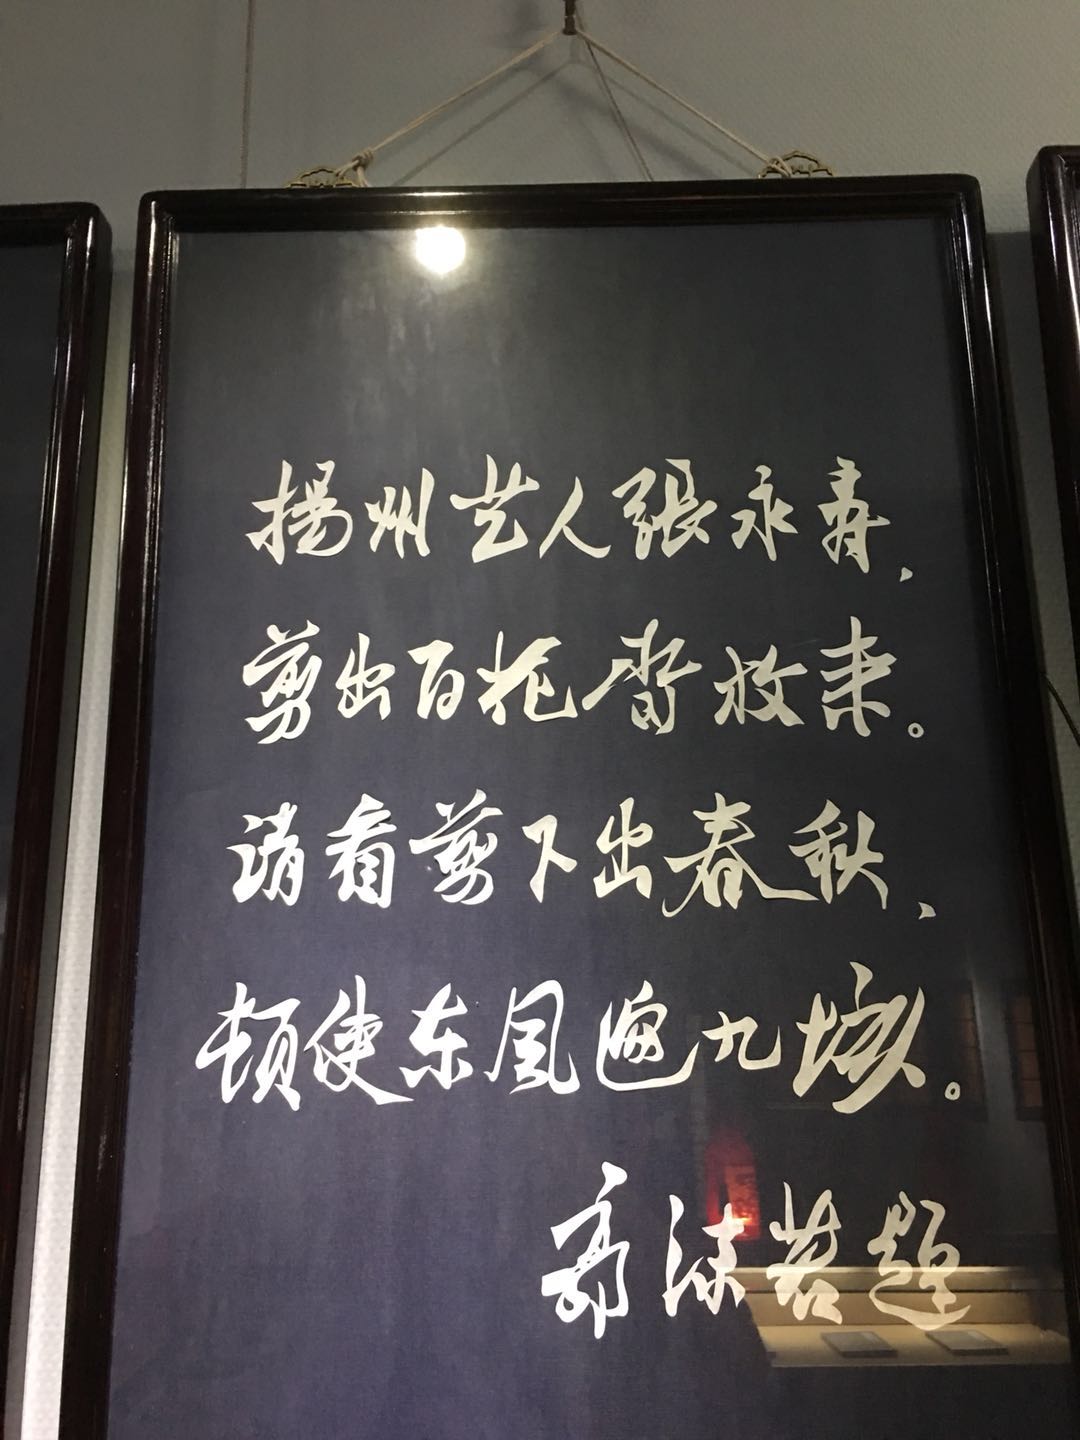 揚州艺人張永寿，
剪出百花齐放来。
请看剪下出春秋，
顿使东风遍九垓。
郭沫若题